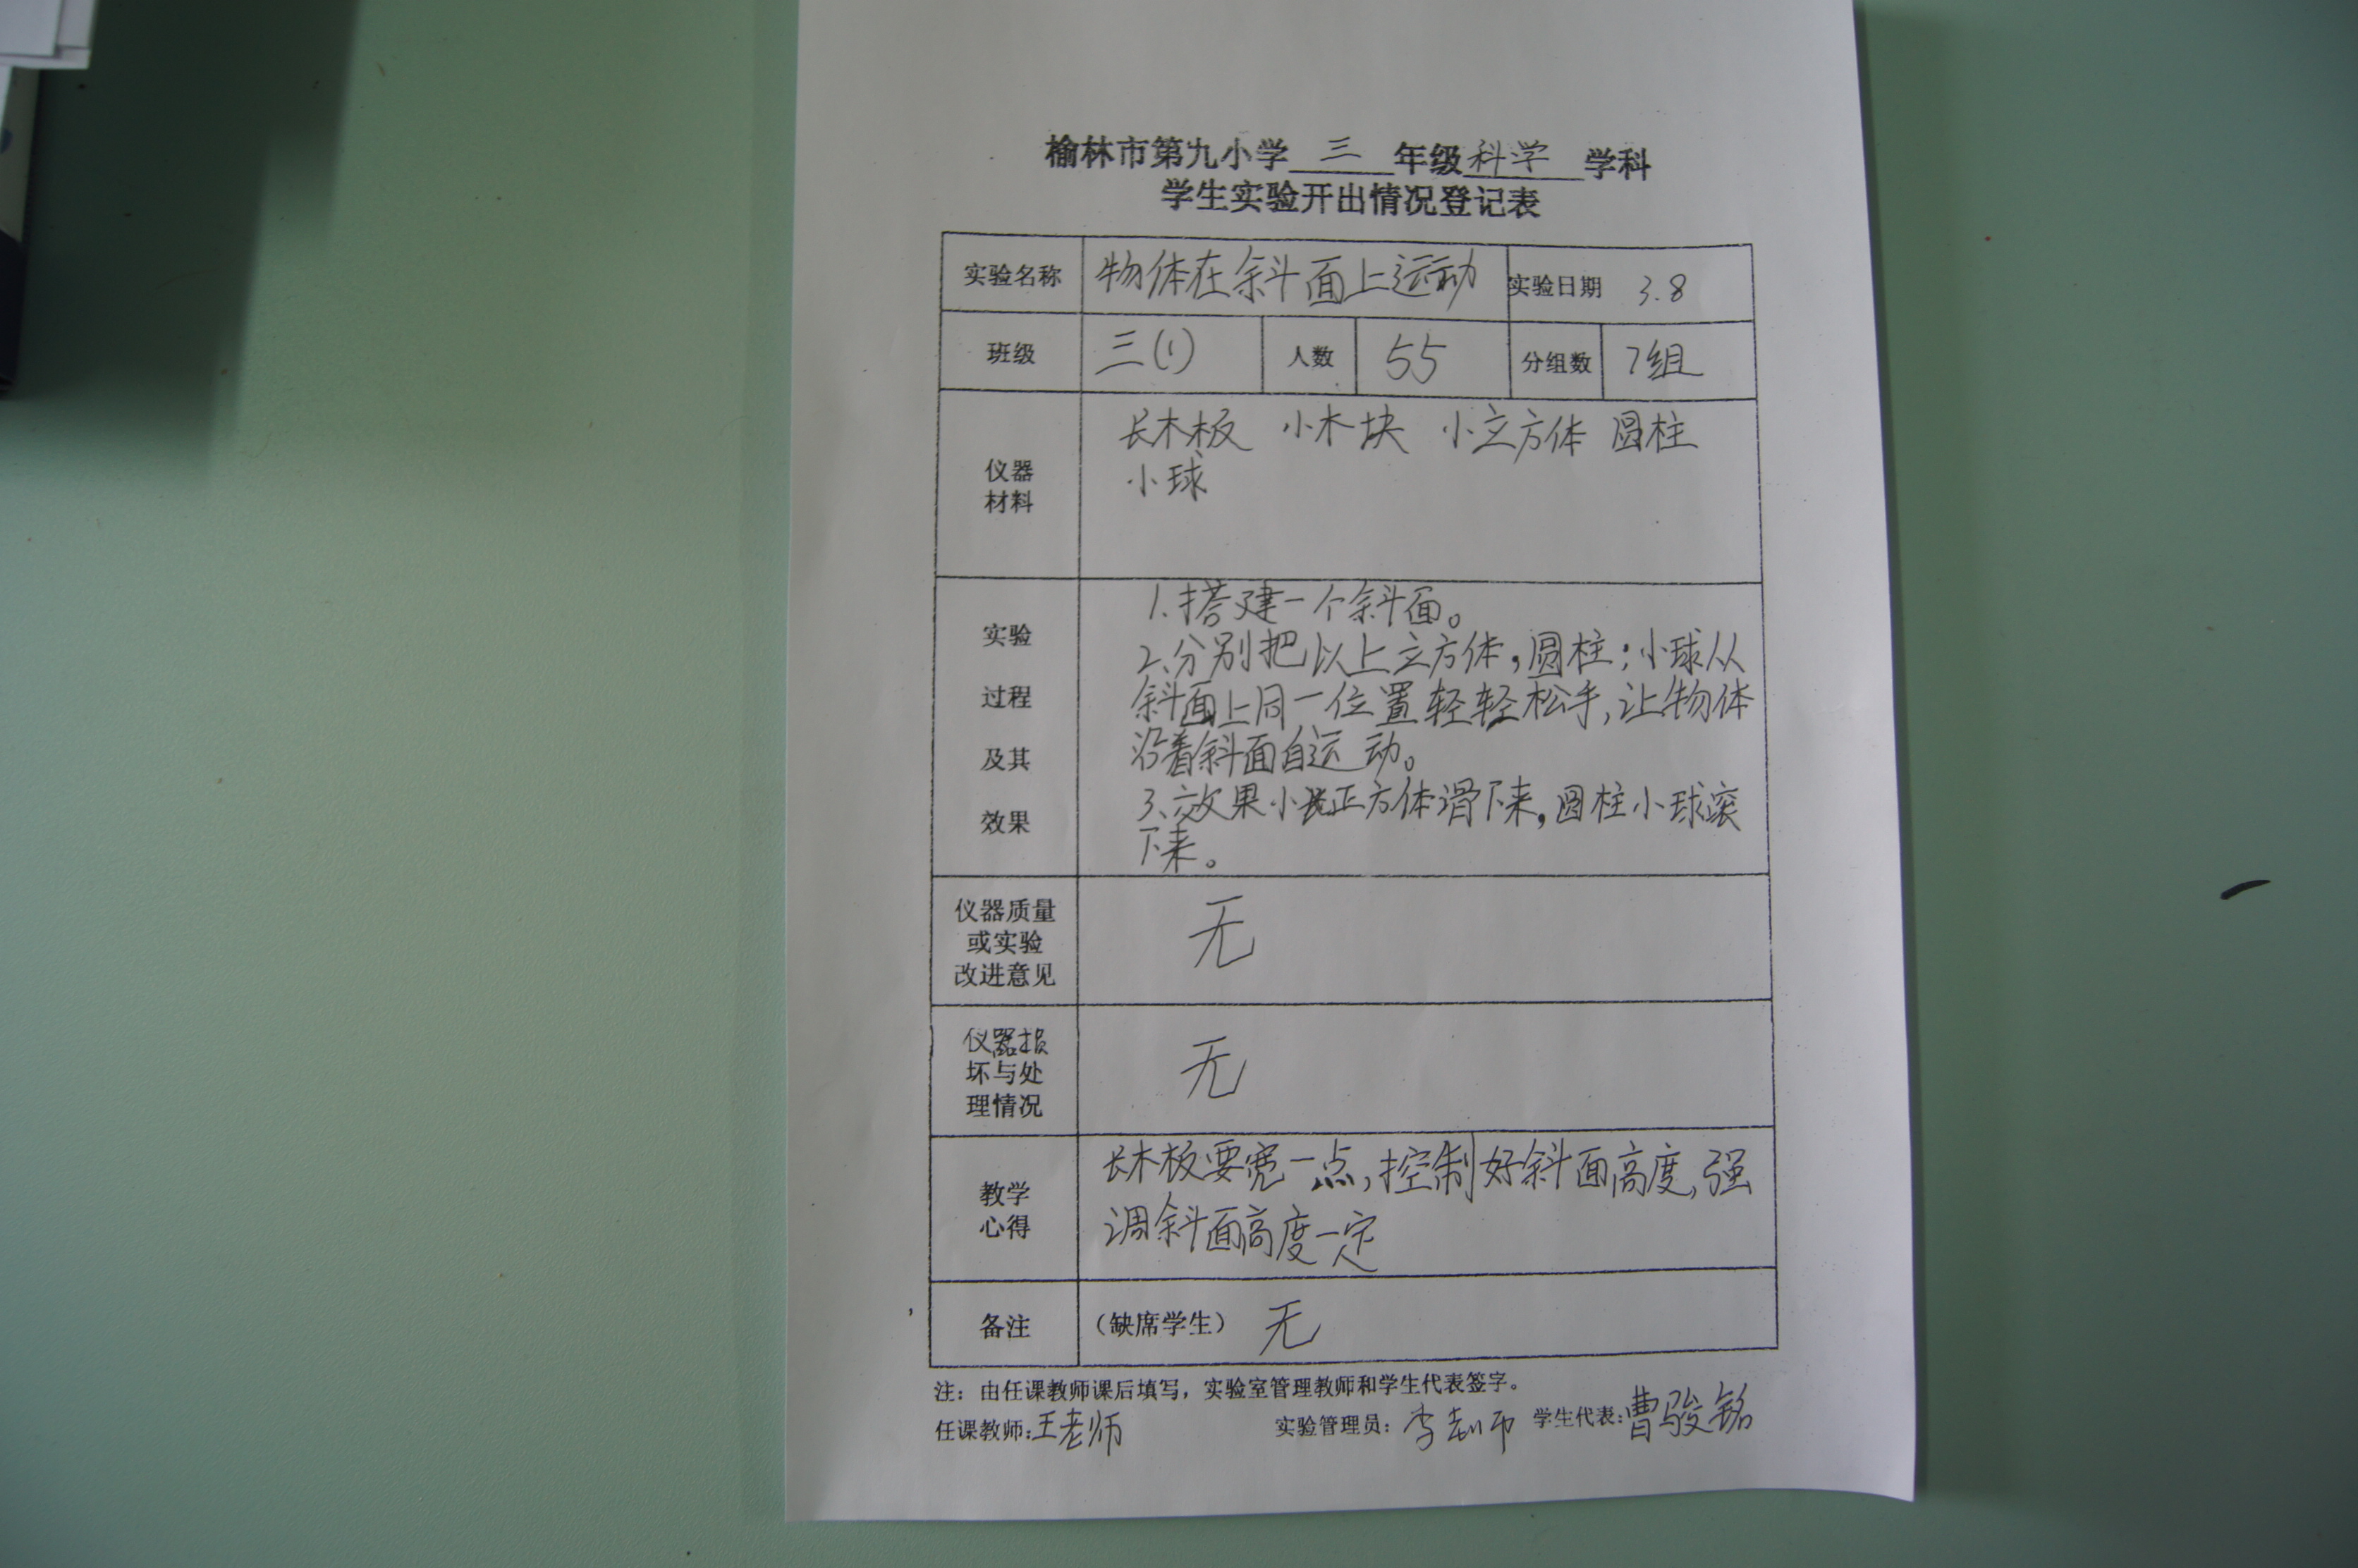 榆林市第九小学 三 年级 科学 学科
学生实验开出情况登记表
实验名称 物体在斜面上运动 实验日期 3.8
班级 三(1) 人数 55 分组数 7组
仪器
材料
长木板 小木块 小立方体 圆柱
小球
实验
过程
及其
效果
1.搭建一个斜面。
2.分别把以上立方体,圆柱;小球从
斜面上同一位置轻轻松手,让物体
沿着斜面自运动。
3.效果小正方体滑下来,圆柱小球滚
下来。
仪器质量
或实验
改进意见
无
仪器损
坏与处
理情况
无
教学
心得
长木板要宽一点,控制好斜面高度,强
调斜面高度一定
备注 (缺席学生) 无
注:由任课教师课后填写,实验室管理教师和学生代表签字。
任课教师:王老师 实验管理员:李老师 学生代表:曹骏铭